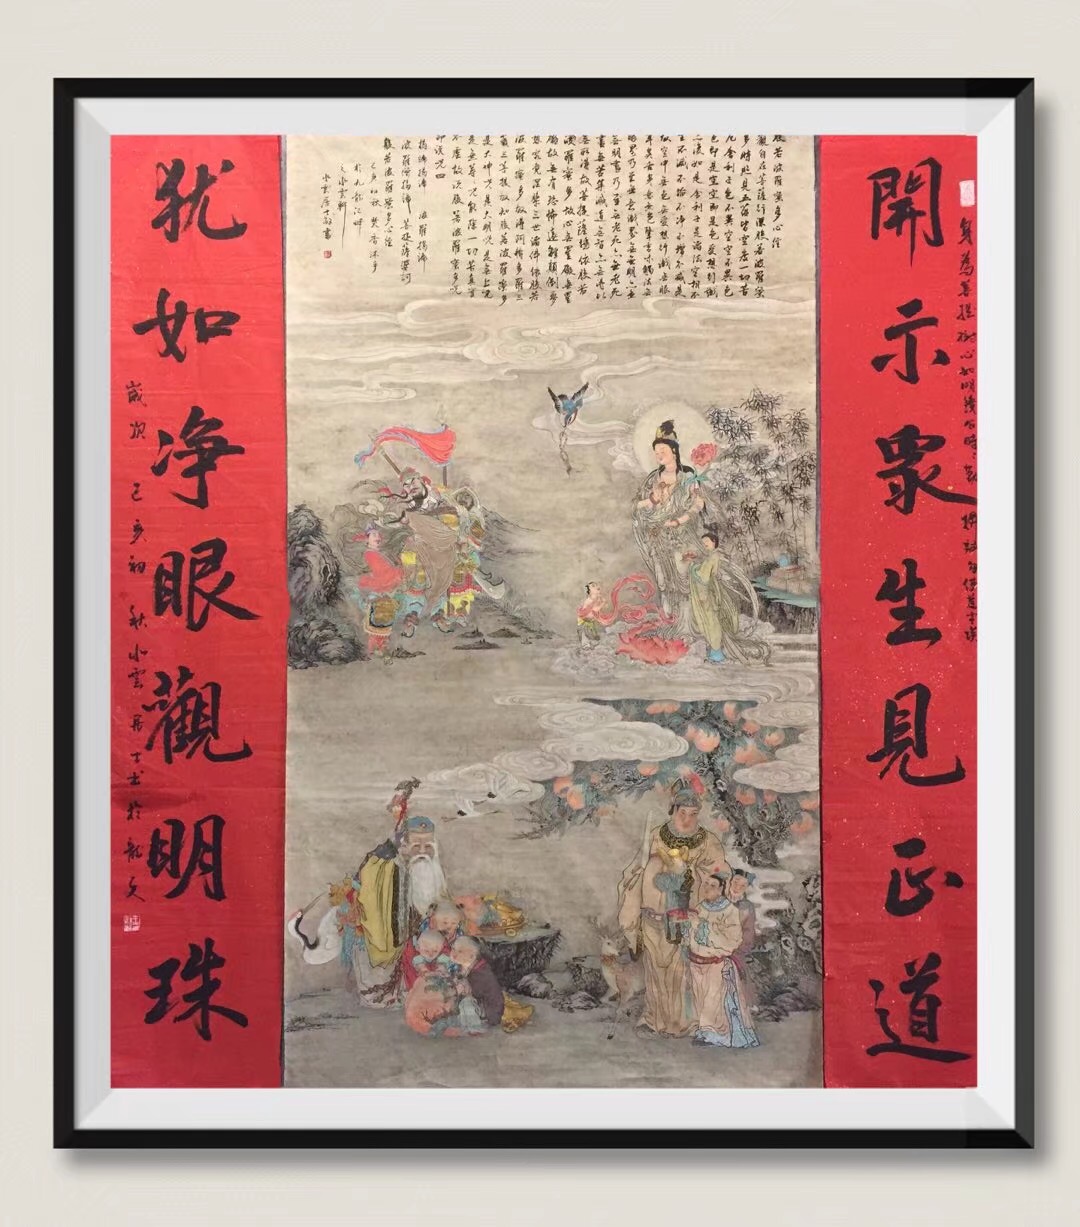 開示眾生見正道
身為菩提樹心如明鏡台時時勤拂拭勿使惹塵埃
般若波羅蜜多心經
觀自在菩薩行深般若波羅蜜
多時照見五蘊皆空度一切苦
厄舍利子色不異空空不異色
色即是空空即是色受想行識
亦復如是舍利子是諸法空相不
生不滅不垢不淨不增不減是
故空中無色無受想行識無眼
耳鼻舌身意無色聲香味觸法無
眼界乃至無意識界無無明亦無
無明盡乃至無老死亦無老死
盡無苦集滅道無智亦無得以
無所得故菩提薩埵依般若
波羅蜜多故心無罣礙無罣
礙故無有恐怖遠離顛倒夢
想究竟涅槃三世諸佛依般若
波羅蜜多故得阿耨多羅三
藐三菩提故知般若波羅蜜多
是大神咒是大明咒是無上咒
是無等等咒能除一切苦真實
不虛故說般若波羅蜜多咒
即說咒曰
揭諦揭諦 波羅揭諦
波羅僧揭諦 菩提薩婆訶
般若波羅蜜多心經
己亥初秋焚香沐手
於九龍江畔
之水雲軒
水雲居士敬書
犹如净眼觀明珠
歲次己亥初秋水雲居士書於龍文